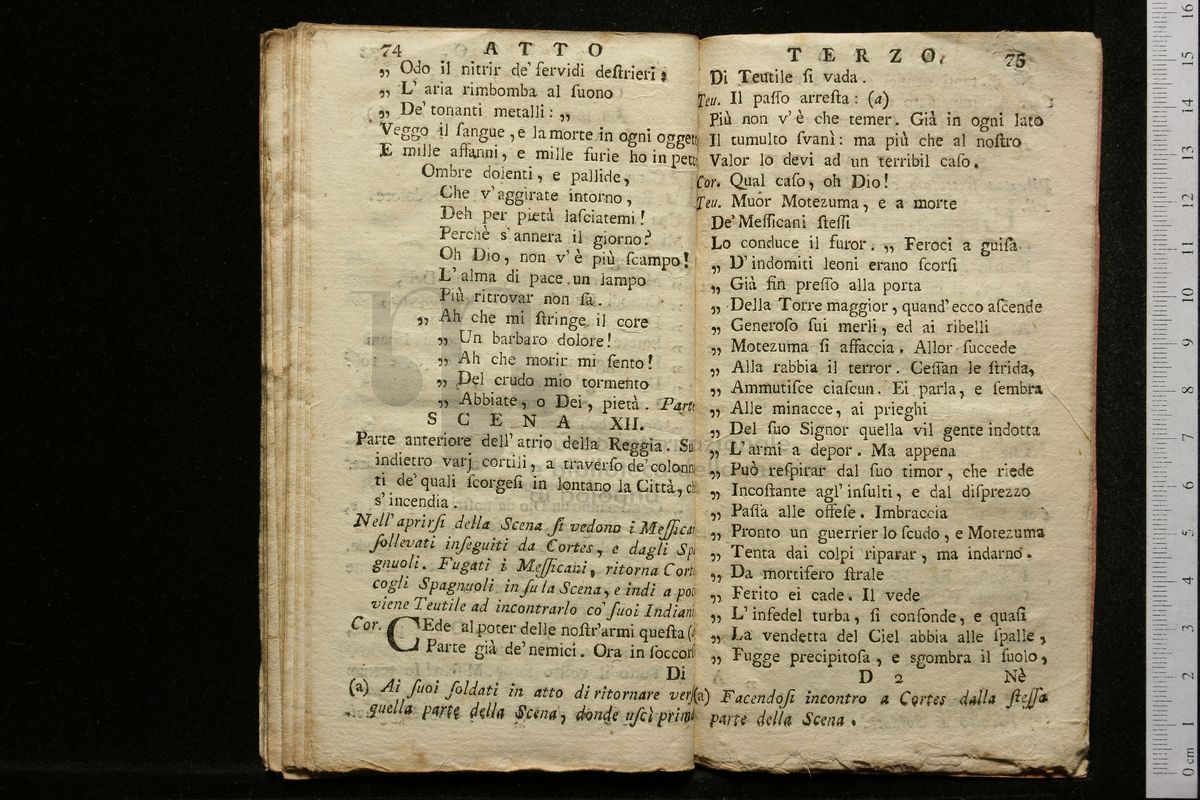 74 ATTO
„ Odo il nitrir de' fervidi deſtrieri;
„ L' aria rimbomba al ſuono
„ De' tonanti metalli: „
Veggo il ſangue, e la morte in ogni ogget
E mille affanni, e mille furie ho in pett
Ombre dolenti, e pallide,
Che v' aggirate intorno,
Deh per pietà laſciatemi!
Perchè s' annera il giorno?
Oh Dio, non v' è più ſcampo!
L' alma di pace un lampo
Più ritrovar non ſa.
„ Ah che mi ſtringe il core
„ Un barbaro dolore!
„ Ah che morir mi ſento!
„ Del crudo mio tormento
„ Abbiate, o Dei, pietà. Parte
SCENA XII.
Parte anteriore dell' atrio della Reggia. Su
indietro varj cortili, a traverſo de' colonn
ti de' quali ſcorgeſi in lontano la Città, c
s' incendia.
Nell' aprirſi della Scena ſi vedono i Meſſica
ſollevati inſeguiti da Cortes, e dagli Sp
gnuoli. Fugati i Meſſicani, ritorna Cort
cogli Spagnuoli in ſu la Scena, e indi a poc
viene Teutile ad incontrarlo co' ſuoi Indian
Cor. CEde al poter delle noſtr' armi queſta (
Parte già de' nemici. Ora in ſoccor
Di
(a) Ai ſuoi ſoldati in atto di ritornare verſ
quella parte della Scena, donde uſcì prim
TERZO. 75
Di Teutile ſi vada.
Teu. Il paſſo arreſta: (a)
Più non v' è che temer. Già in ogni lato
Il tumulto ſvanì: ma più che al noſtro
Valor lo devi ad un terribil caſo.
Cor. Qual caſo, oh Dio!
Teu. Muor Motezuma, e a morte
De' Meſſicani ſteſſi
Lo conduce il furor. „ Feroci a guiſa
„ D' indomiti leoni erano ſcorſi
„ Già fin preſſo alla porta
„ Della Torre maggior, quand' ecco aſcende
„ Generoſo ſui merli, ed ai ribelli
„ Motezuma ſi affaccia. Allor ſuccede
„ Alla rabbia il terror. Ceſſan le ſtrida,
„ Ammutiſce ciaſcun. Ei parla, e ſembra
„ Alle minacce, ai prieghi
„ Del ſuo Signor quella vil gente indotta
„ L' armi a depor. Ma appena
„ Può reſpirar dal ſuo timor, che riede
„ Incoſtante agl' inſulti, e dal diſprezzo
„ Paſſa alle offeſe. Imbraccia
„ Pronto un guerrier lo ſcudo, e Motezuma
„ Tenta dai colpi riparar, ma indarno.
„ Da mortifero ſtrale
„ Ferito ei cade. Il vede
„ L' infedel turba, ſi confonde, e quaſi
„ La vendetta del Ciel abbia alle ſpalle,
„ Fugge precipitoſa, e sgombra il ſuolo,
D 2 Nè
(a) Facendoſi incontro a Cortes dalla ſteſſa
parte della Scena.
0 cm 1 2 3 4 5 6 7 8 9 10 11 12 13 14 15 16